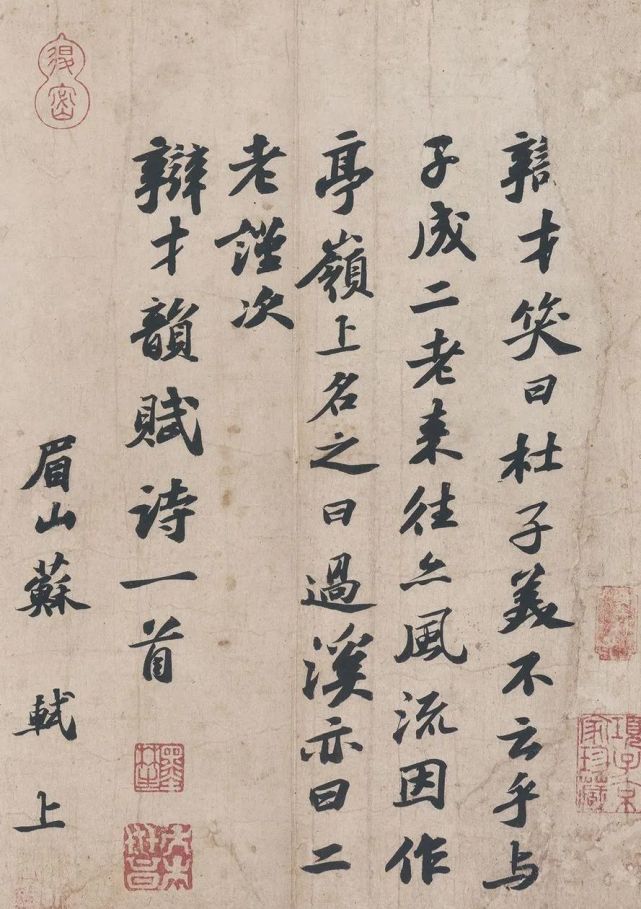 辯才笑曰杜子美不云乎与
子成二老来往亦風流因作
亭嶺上名之曰過溪亦曰二
老謹次
辯才韻賦诗一首
眉山蘇軾上
項子京
家珍藏